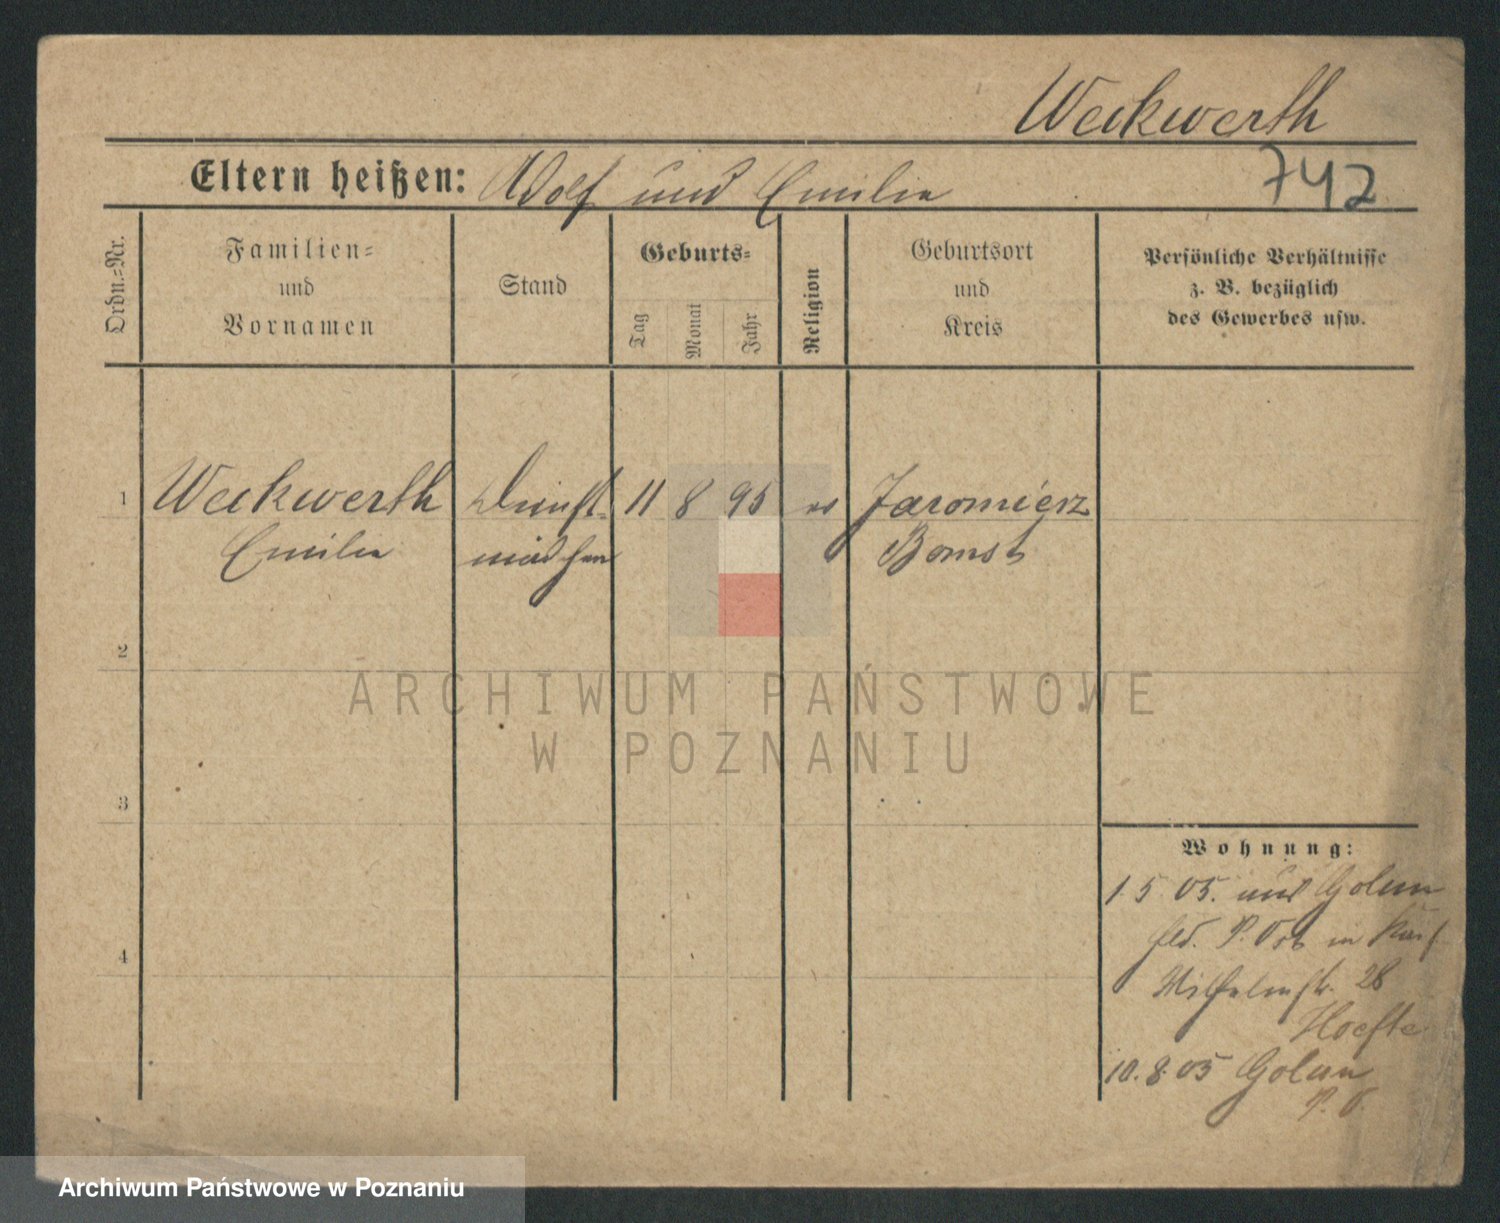 Weckwerth
Eltern heißen: Adolf und Emilie
742
Ordn.=Nr.
Familien=
und
Vornamen
Stand
Geburts=
Tag
Monat
Jahr
Religion
Geburtsort
und
Kreis
Persönliche Verhältnisse
z. B. bezüglich
des Gewerbes usw.
1 Weckwerth Dienst- 11 8 95 ev Jaromierz
Emilie mädchen Bomst
2
3
4
Wohnung:
1. 5. 05. aus
P. Ost in
Wilhelmstr. 28
10. 8. 05
ARCHIWUM PAŃSTWOWE
W POZNANIU
Archiwum Państwowe w Poznaniu